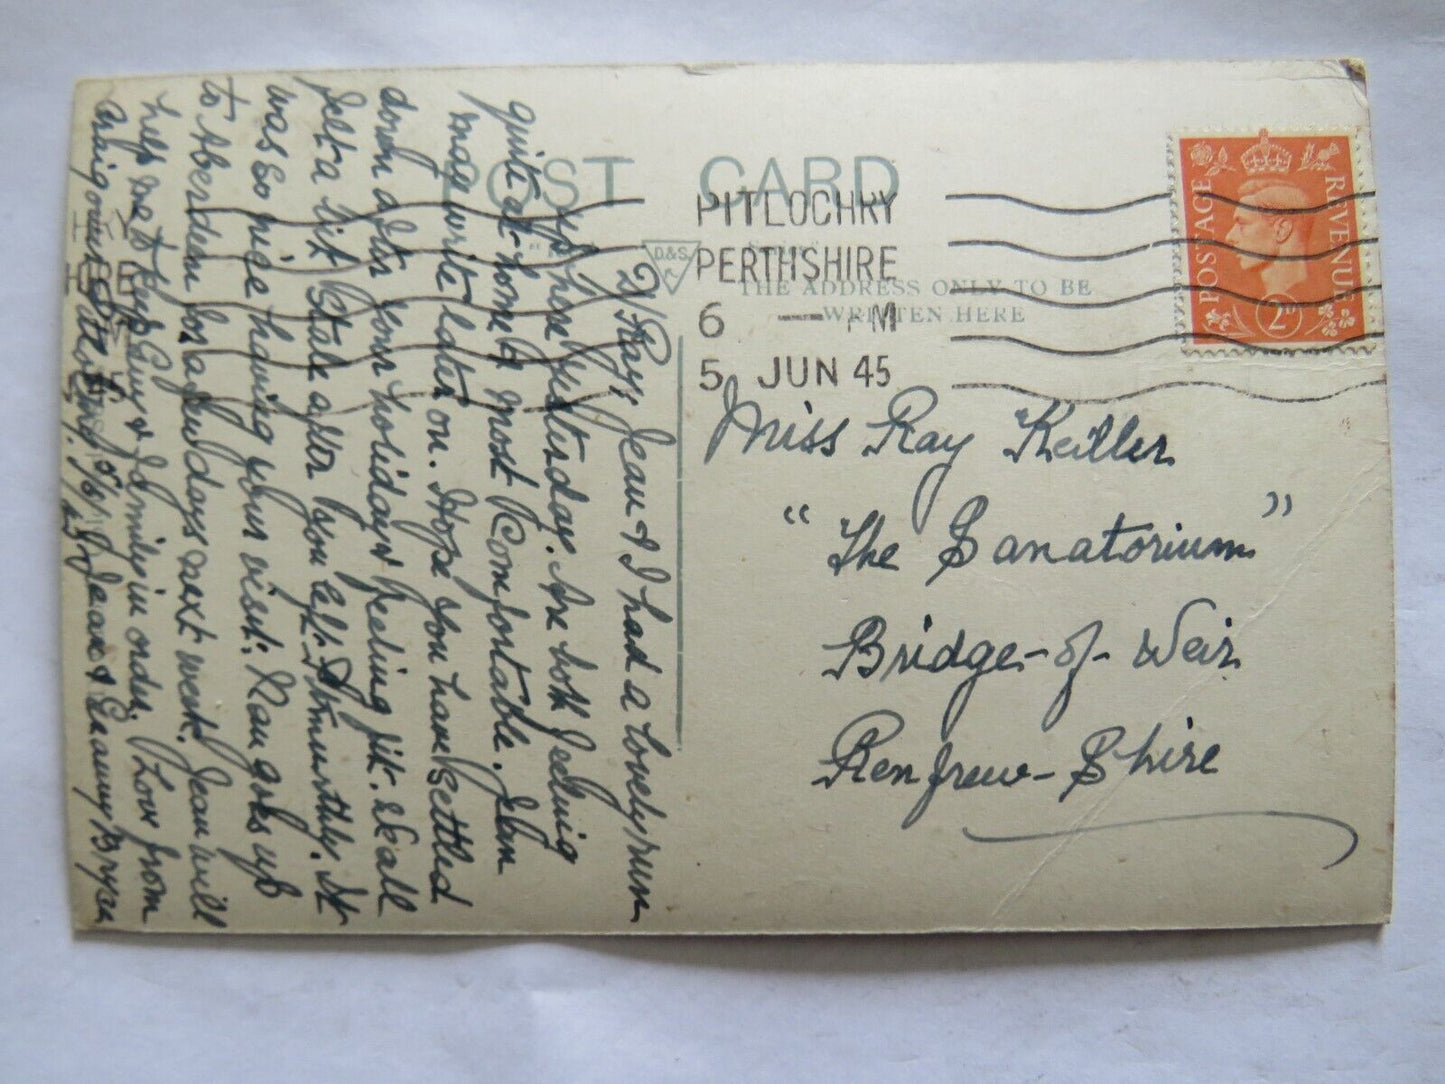 POST CARD
D.&S.
K
THE ADDRESS ONLY TO BE
WRITTEN HERE
PITLOCHRY
PERTHSHIRE
6 — PM
5 JUN 45
POSTAGE
REVENUE
2D
Miss Ray Keiller
"The Sanatorium"
Bridge-of-Weir
Renfrew-Shire
D/ Ray, Jean & I had a lovely run
up here yesterday. Are both feeling
quite at home & most Comfortable. Ian
may write later on. Hope you have settled
down after your holiday & feeling fit. & all
felt a bit stale after you left Strunthly. It
was so nice having your visit: Ray goes up
to Aberdeen for a few days next week. Jean will
help me to keep Ewy & Emily in order. Love from
Craigower Pitlochry. 5/6/45 Jean & Granny Bryan